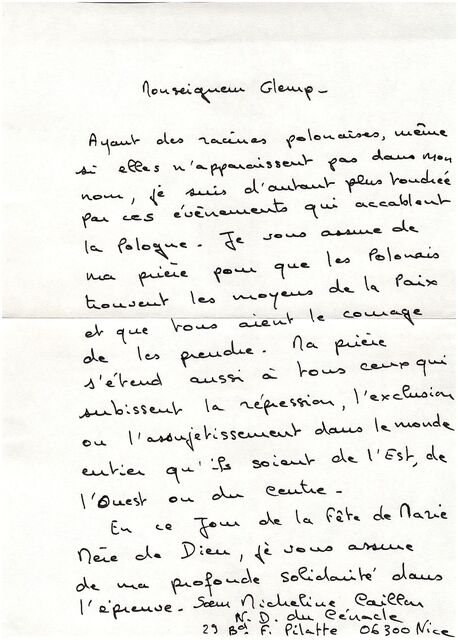 Monseigneur Glemp -
Ayant des racines polonaises, même
si elles n'apparaissent pas dans mon
nom, je suis d'autant plus touchée
par ces évènements qui accablent
la Pologne. Je vous assure de
ma prière pour que les Polonais
trouvent les moyens de la Paix
et que tous aient le courage
de les prendre. Ma prière
s'étend aussi à tous ceux qui
subissent la répression, l'exclusion
ou l'assujetissement dans le monde
entier qu'ils soient de l'Est, de
l'Ouest ou du centre -
En ce Jour de la Fête de Marie
Mère de Dieu, je vous assure
de ma profonde solidarité dans
l'épreuve. Sœur Micheline
N. D. du Cénacle
29 Bd F. Pilatte 06300 Nice